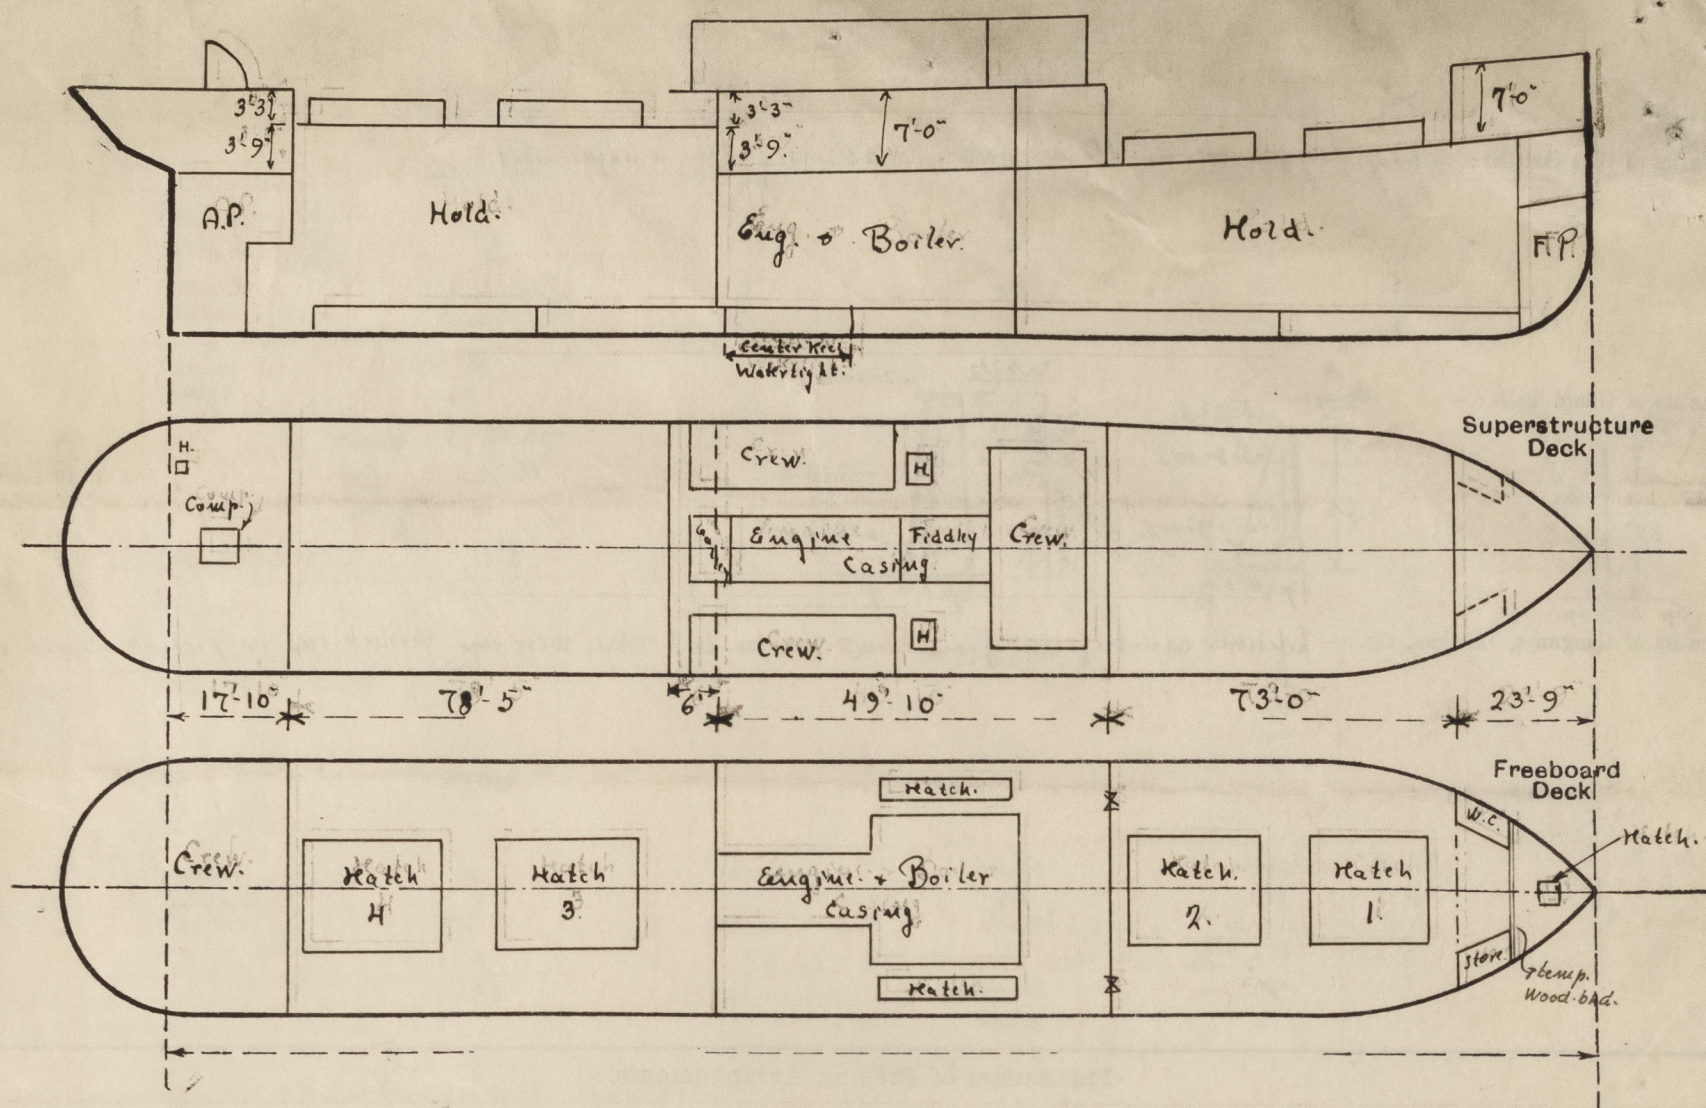 3'-3"
3'-9"
3'-3"
3'-9"
7'-0"
7'-0"
A.P.
Hold.
Eng. & Boiler.
Hold.
F.P.
Center Keel
Watertight.
Superstructure
Deck
H.
Comp.
Crew.
H
Galley
Engine
Casing
Fiddley
Crew.
Crew.
H
17'-10"
78'-5"
6'
49'-10"
73'-0"
23'-9"
Freeboard
Deck
Crew.
Hatch
4
Hatch
3.
Hatch.
Engine & Boiler
Casing
Hatch.
Hatch.
2.
Hatch
1.
W.C.
Hatch.
Store.
temp.
Wood-bhd.